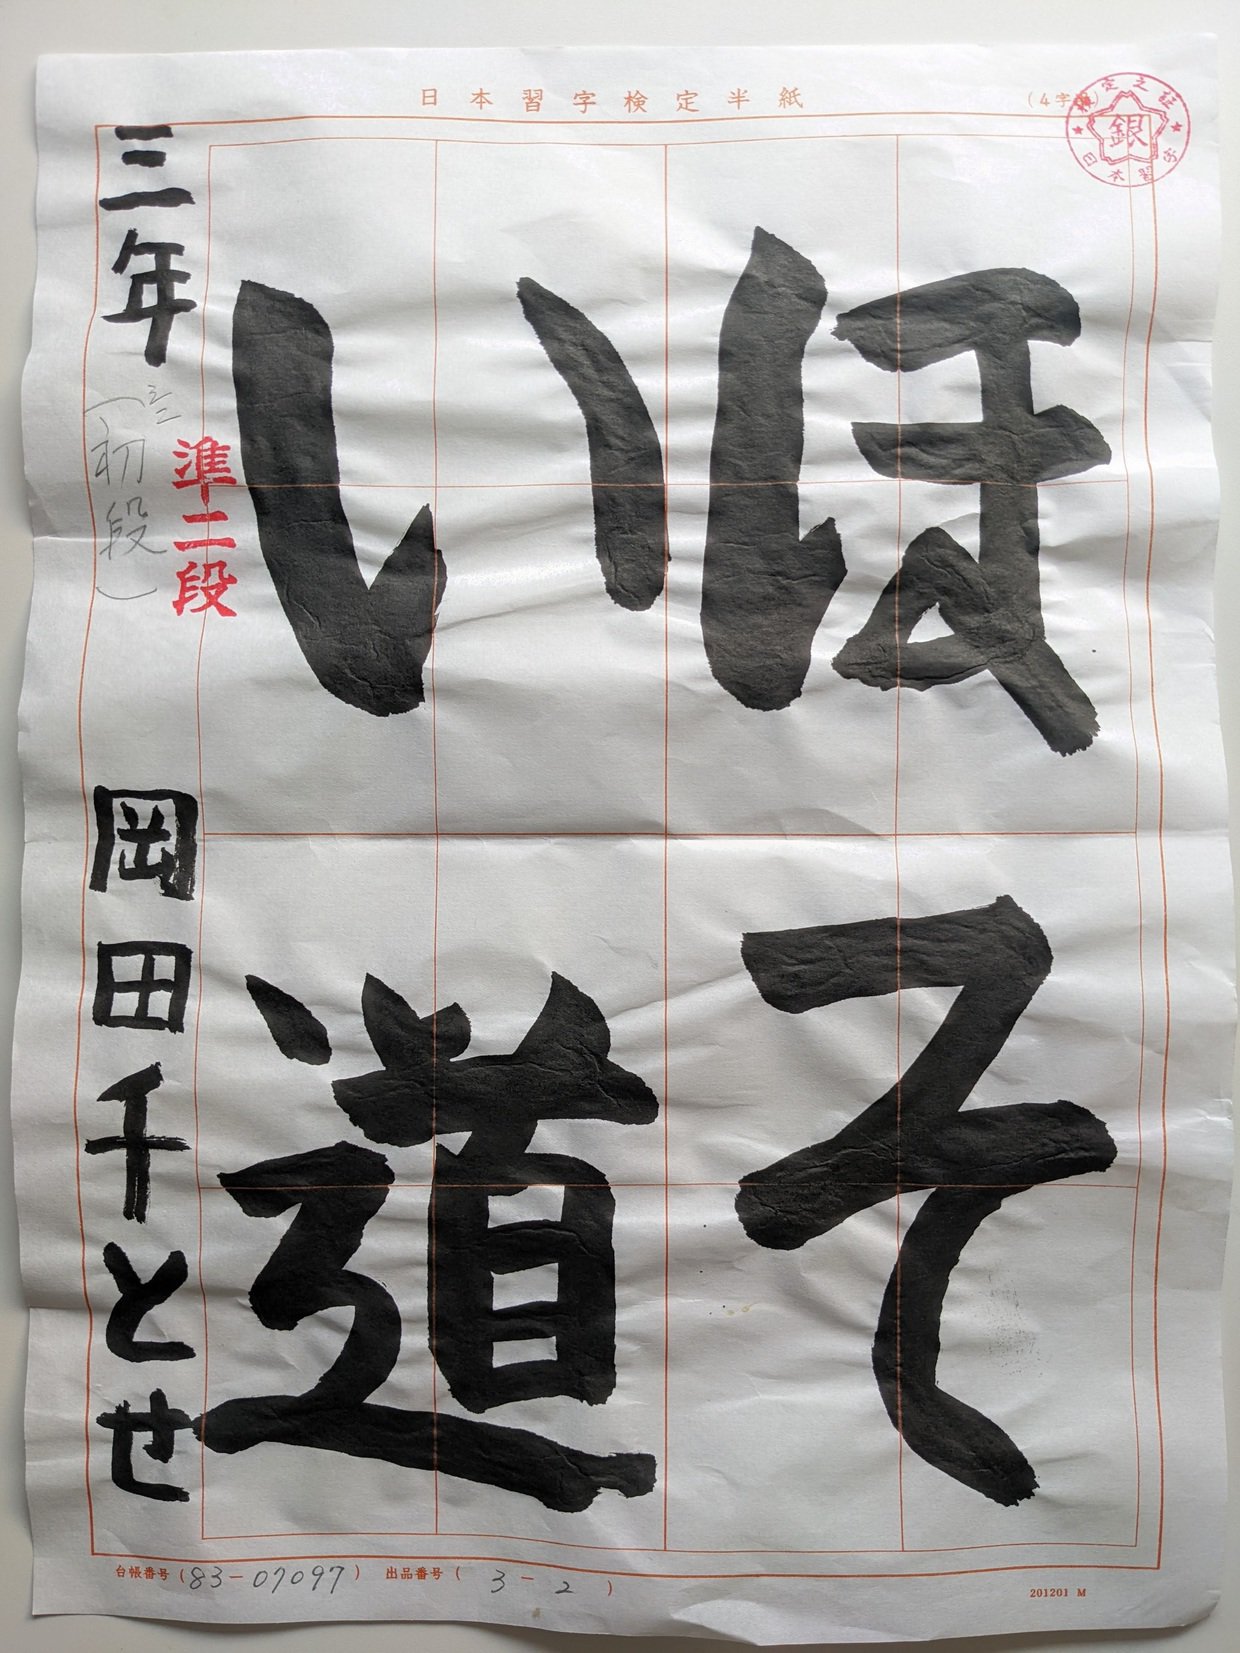 日本習字検定半紙
(4字
検定之証
銀
日本習字
ほそ
い道
三年
(初段)
準二段
岡田千とせ
台帳番号(83-07097) 出品番号(3-2)
201201 M